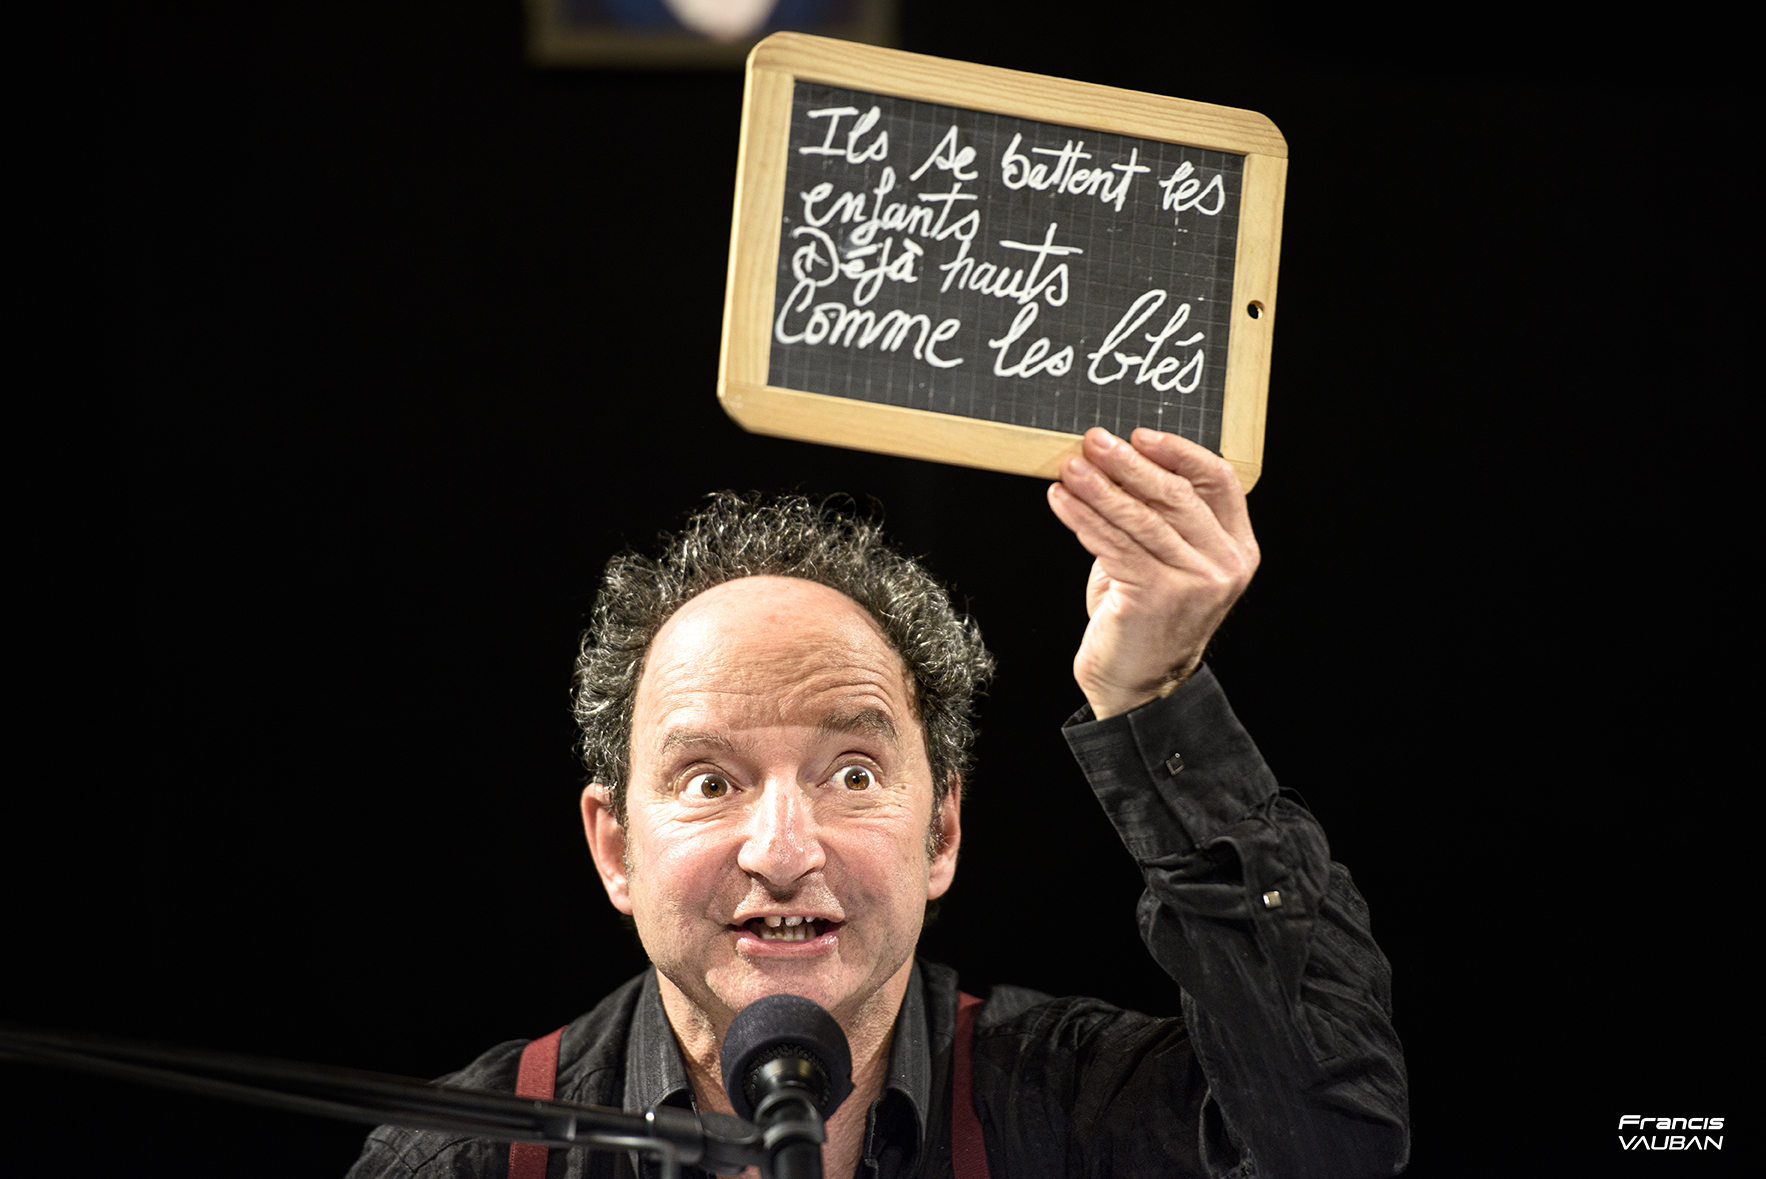 Ils se battent les
enfants
Déjà hauts
Comme les blés
Francis
VAUBAN